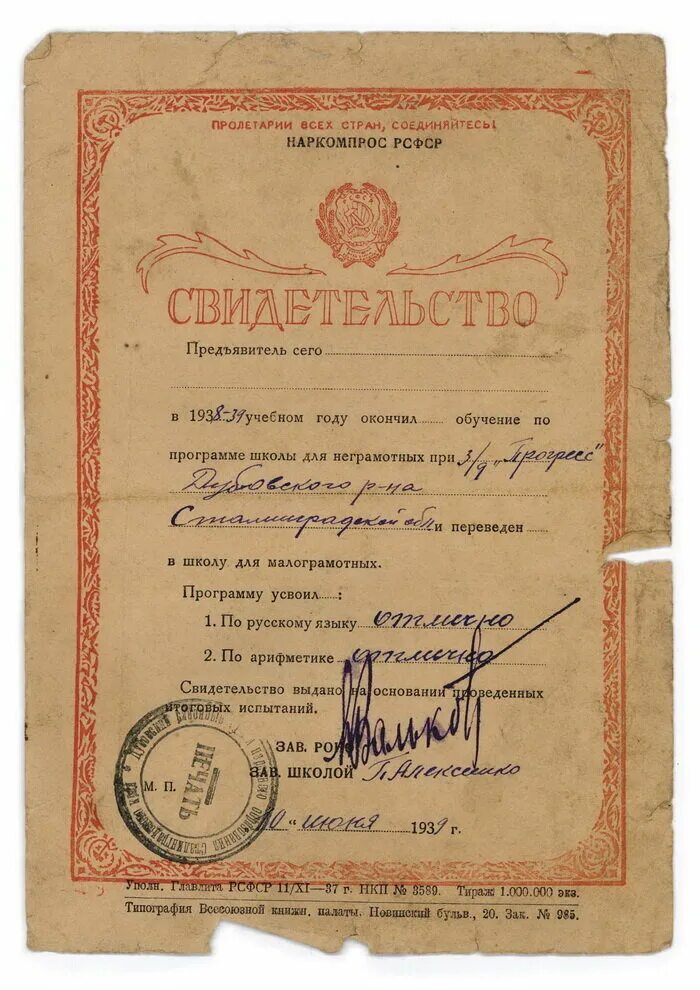 ПРОЛЕТАРИИ ВСЕХ СТРАН, СОЕДИНЯЙТЕСЬ!
НАРКОМПРОС РСФСР
РСФСР
СВИДЕТЕЛЬСТВО
Предъявитель сего
в 1938-39 учебном году окончил обучение по
программе школы для неграмотных при з/д „Прогресс"
Дубовского р-на
Сталинградской обл и переведен
в школу для малограмотных.
Программу усвоил :
1. По русскому языку отлично
2. По арифметике отлично
Свидетельство выдано на основании проведенных
итоговых испытаний.
ЗАВ. РОНО
ЗАВ. ШКОЛОЙ П. Алексенко
М. П.
ПЕЧАТЬ
народного образования
10 " июня 1939 г.
Уполн. Главлита РСФСР 11/XI—37 г. НКП № 3589. Тираж 1.000.000 экз.
Типография Всесоюзной книжн. палаты. Новинский бульв., 20. Зак. № 985.